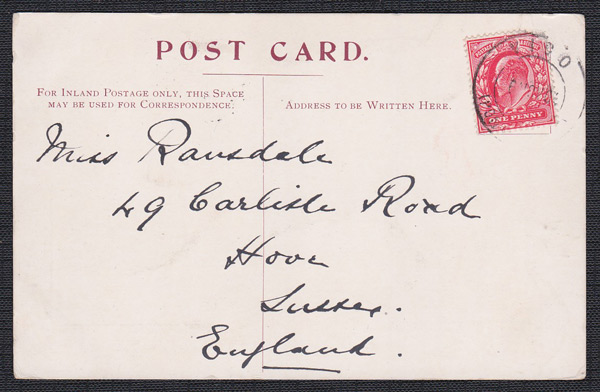 POST CARD.
FOR INLAND POSTAGE ONLY, THIS SPACE
MAY BE USED FOR CORRESPONDENCE.
ADDRESS TO BE WRITTEN HERE.
ONE PENNY
Miss Ransdale
49 Carlisle Road
Hove
Sussex.
England.